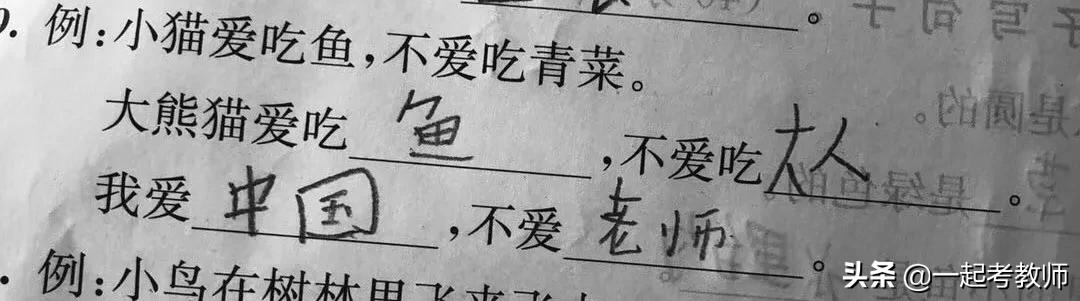 。
9. 例:小猫爱吃鱼,不爱吃青菜。
大熊猫爱吃鱼,不爱吃大人。
我爱中国,不爱老师。
例:小鸟在树林里飞来飞去
头条 @一起考教师